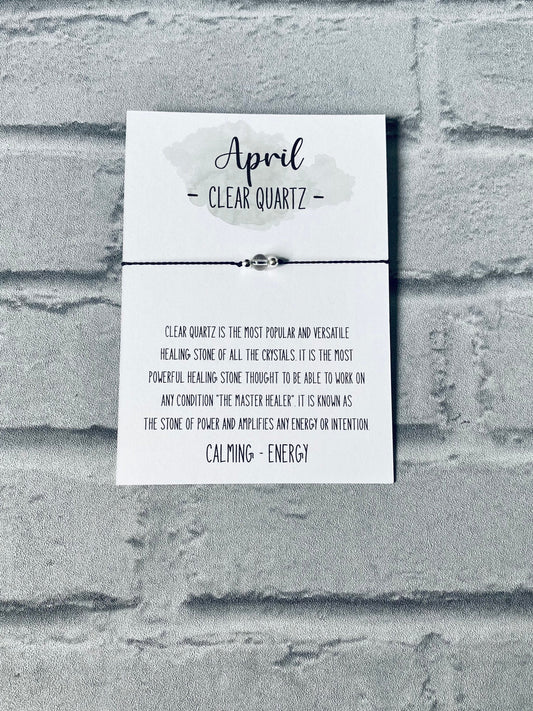 April
- CLEAR QUARTZ -
CLEAR QUARTZ IS THE MOST POPULAR AND VERSATILE
HEALING STONE OF ALL THE CRYSTALS. IT IS THE MOST
POWERFUL HEALING STONE THOUGHT TO BE ABLE TO WORK ON
ANY CONDITION "THE MASTER HEALER". IT IS KNOWN AS
THE STONE OF POWER AND AMPLIFIES ANY ENERGY OR INTENTION.
CALMING - ENERGY